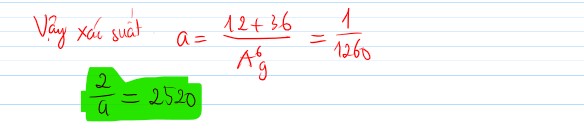 Vậy xác suất a = \frac{12+36}{A_9^6} = \frac{1}{1260}
\frac{2}{a} = 2520